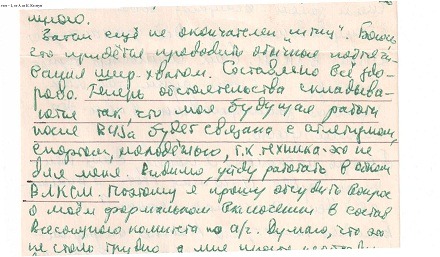 много.
Затем ещё не окончателен "                ". Боюсь
что придётся проводить обычное подтяги-
вание шир. хватом. Составлено всё здо-
рово. Теперь обстоятельства складыва-
ются так, что моя будущая работа
после ВУЗа будет связана с атлетизмом,
спортом, молодёжью, т.к. техника - это не
для меня. Видимо, уйду работать в обком
ВЛКСМ. Поэтому я прошу обсудить вопрос
о моём формальном включении в состав
всесоюзного комитета по а/г. Думаю, что это
не столь трудно, а мне